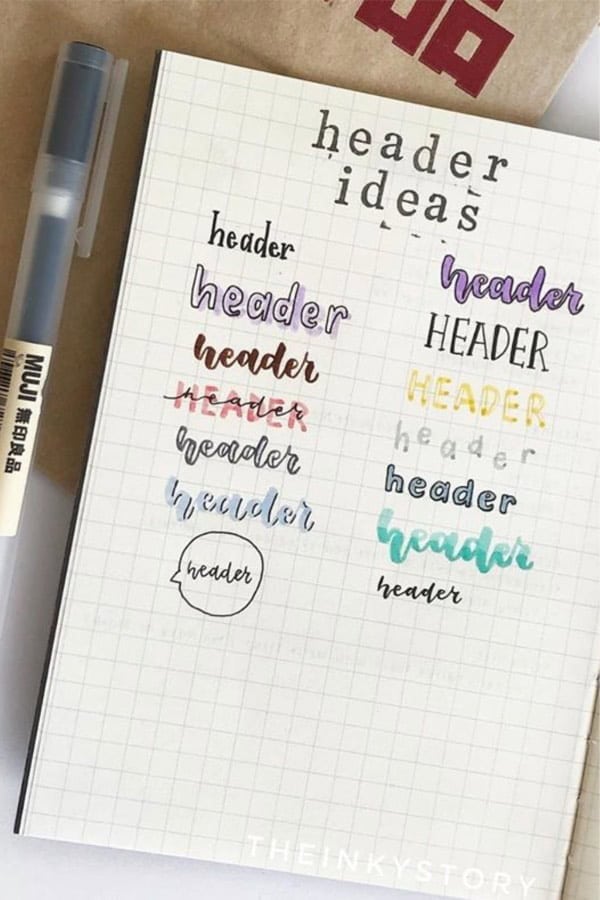 header
ideas
header
header
header
HEADER
header
header
header
header
header
HEADER
HEADER
header
header
header
header
MUJI 無印良品
THEINKYSTORY